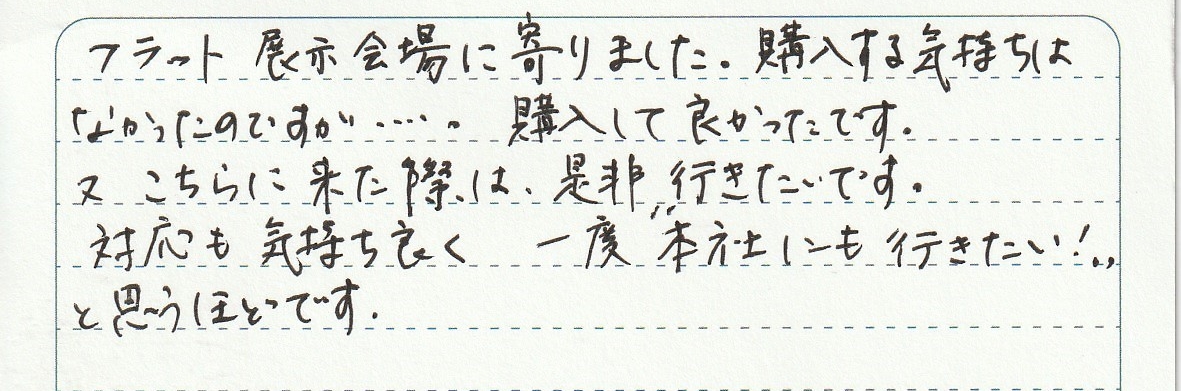 フラット 展示会場に寄りました。購入する気持ちは
なかったのですが‥‥。 購入して良かったです。
又 こちらに来た際は、是非 行きたいです。
対応も 気持ち良く 一度 "本社にも行きたい!"
と思うほどです.